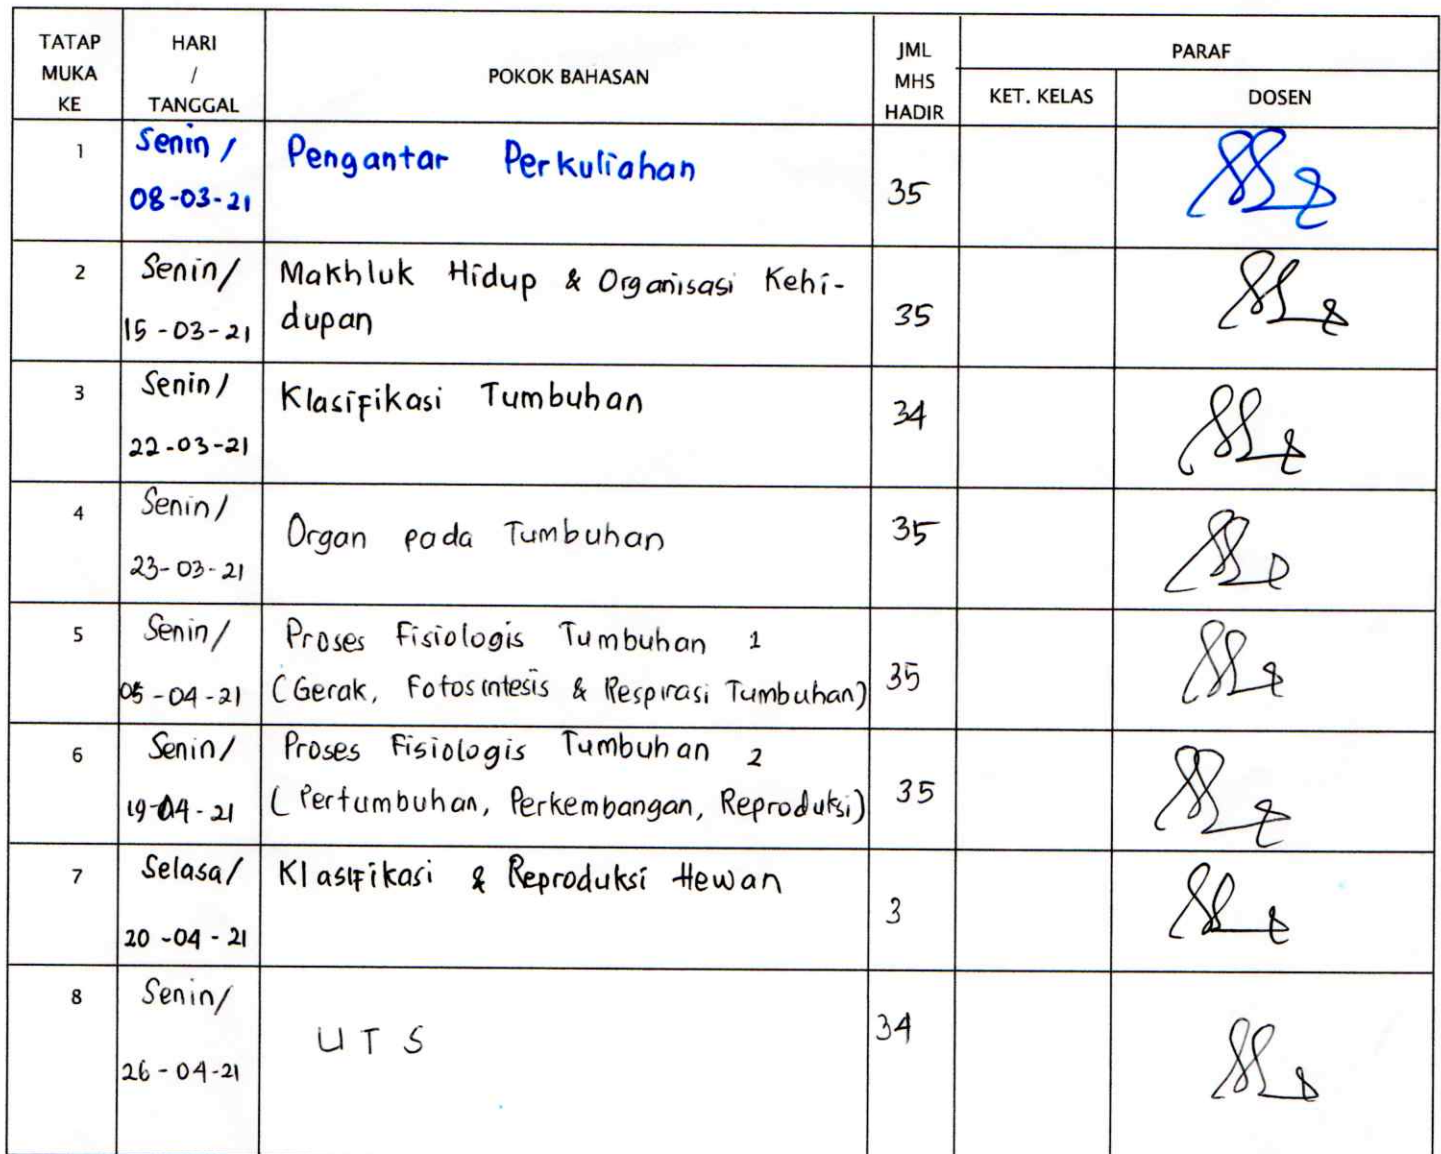 TATAP MUKA KE
HARI / TANGGAL
POKOK BAHASAN
JML MHS HADIR
PARAF
KET. KELAS
DOSEN
1
Senin /
08-03-21
Pengantar Perkuliahan
35
2
Senin/
15-03-21
Makhluk Hidup & Organisasi Kehi-
dupan
35
3
Senin/
22-03-21
Klasifikasi Tumbuhan
34
4
Senin/
23-03-21
Organ pada Tumbuhan
35
5
Senin/
05-04-21
Proses Fisiologis Tumbuhan 1
(Gerak, Fotosintesis & Respirasi Tumbuhan)
35
6
Senin/
19-04-21
Proses Fisiologis Tumbuhan 2
(Pertumbuhan, Perkembangan, Reproduksi)
35
7
Selasa/
20-04-21
Klasifikasi & Reproduksi Hewan
3
8
Senin/
26-04-21
UTS
34